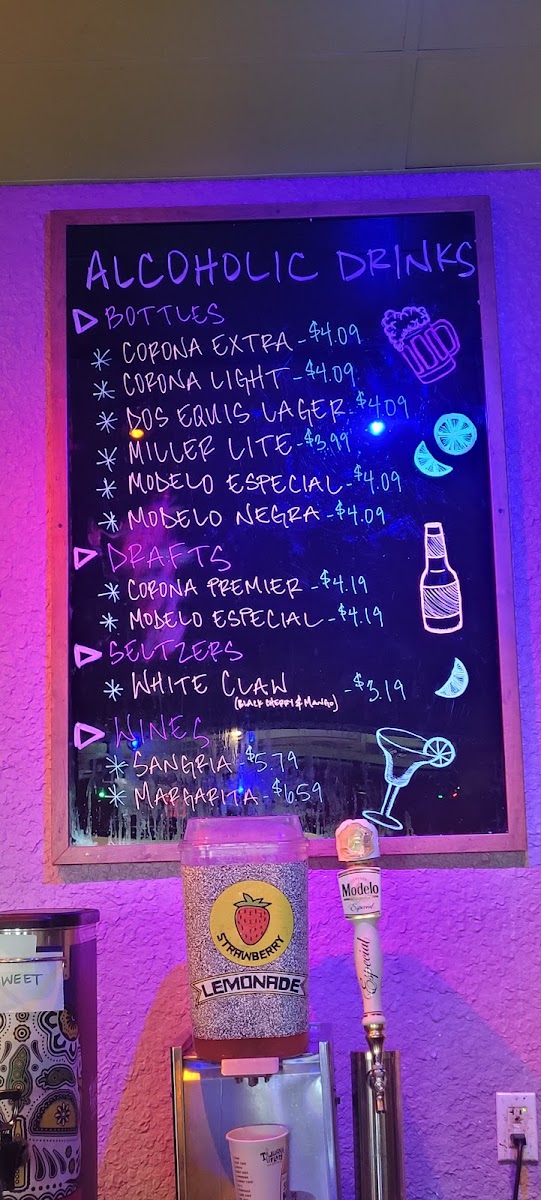 ALCOHOLIC DRINKS
BOTTLES
* CORONA EXTRA - $4.09
* CORONA LIGHT - $4.09
* DOS EQUIS LAGER - $4.09
* MILLER LITE - $3.99
* MODELO ESPECIAL - $4.09
* MODELO NEGRA - $4.09
DRAFTS
* CORONA PREMIER - $4.19
* MODELO ESPECIAL - $4.19
SELTZERS
* WHITE CLAW - $3.19
(BLACK CHERRY & MANGO)
WINES
* SANGRIA - $5.79
* MARGARITA - $6.59
STRAWBERRY
LEMONADE
Modelo
Especial
Especial
WEET